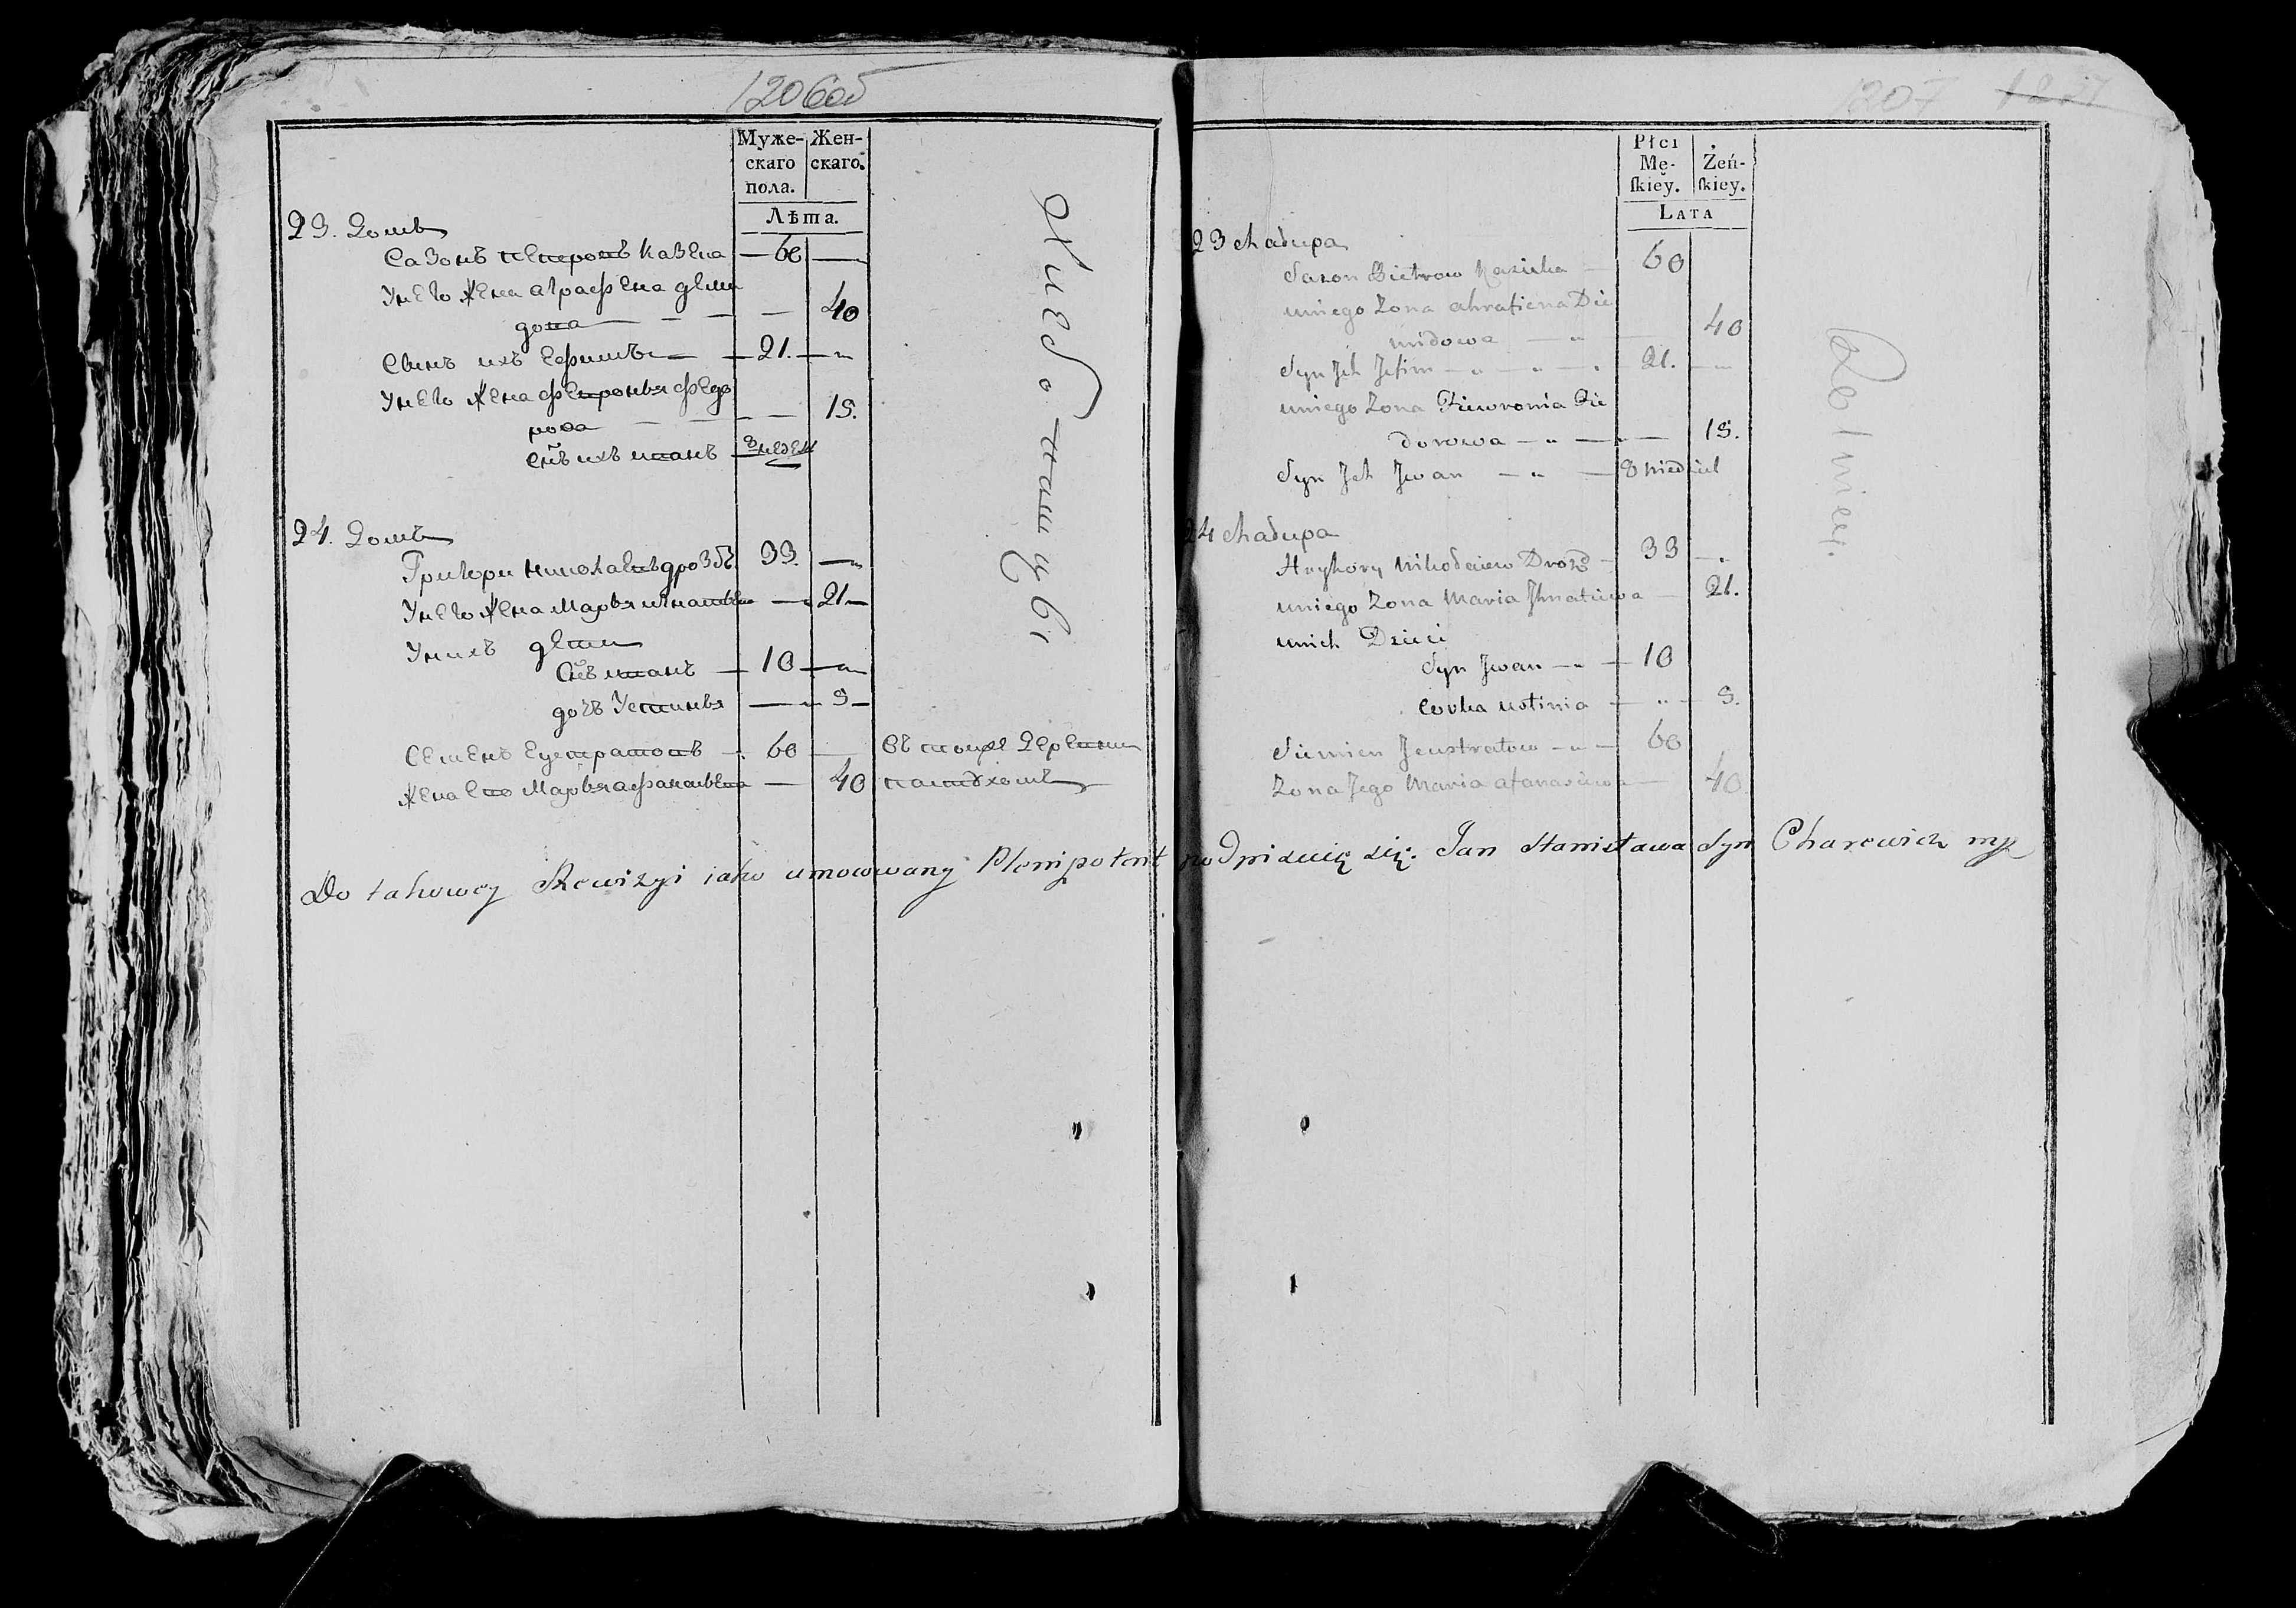 1206об
Муже-
скаго
пола.
Жен-
скаго.
Лѣта.
23. Домъ
Сазонъ Петровъ Казека — 60 —
У него Жена аграфена деми
дова — — — 40
Сынъ ихъ Ефимъ — 21. —
У него Жена февронья федо
рова — — 15.
Сн̃ъ ихъ иванъ 8 недел
24. Домъ
Григори николаевъ дрозбъ. 33. —
У него Жена Марья игнатьева — 21 —
У нихъ дети
Сн̃ъ иванъ — 10 —
дочь Устинья — 9 —
Семенъ Еустратовъ — 60 — въ тоцже Деревни
Жена его Марья афанасьева — 40
1207
Płci
Mę-
ſkiéy.
Żeń-
ſkiey.
Lata
23 Chałupa
Sazon Pietrow Kazieka — 60
uniego Zona ahrafiena Die
midowa — 40
Syn Jch Jefim — 21. —
uniego Zona Fiewronia Fie
dorowa — 15.
Syn Jch Jwan — 8 niedziel
24 Chałupa
Hryhory Nikołaiew Drozd — 33 —
uniego Zona Maria Jhnatiewa — 21.
unich Dzieci
Syn Jwan — 10
Corka ustinia — 9.
Siemien Jeustratow — 60
Zona Jego Maria afanasiewa — 40
Do takowey Rewizyi iako umocowany Plenipotent podpisuię się. Jan Stanisława Syn Charewicz mp